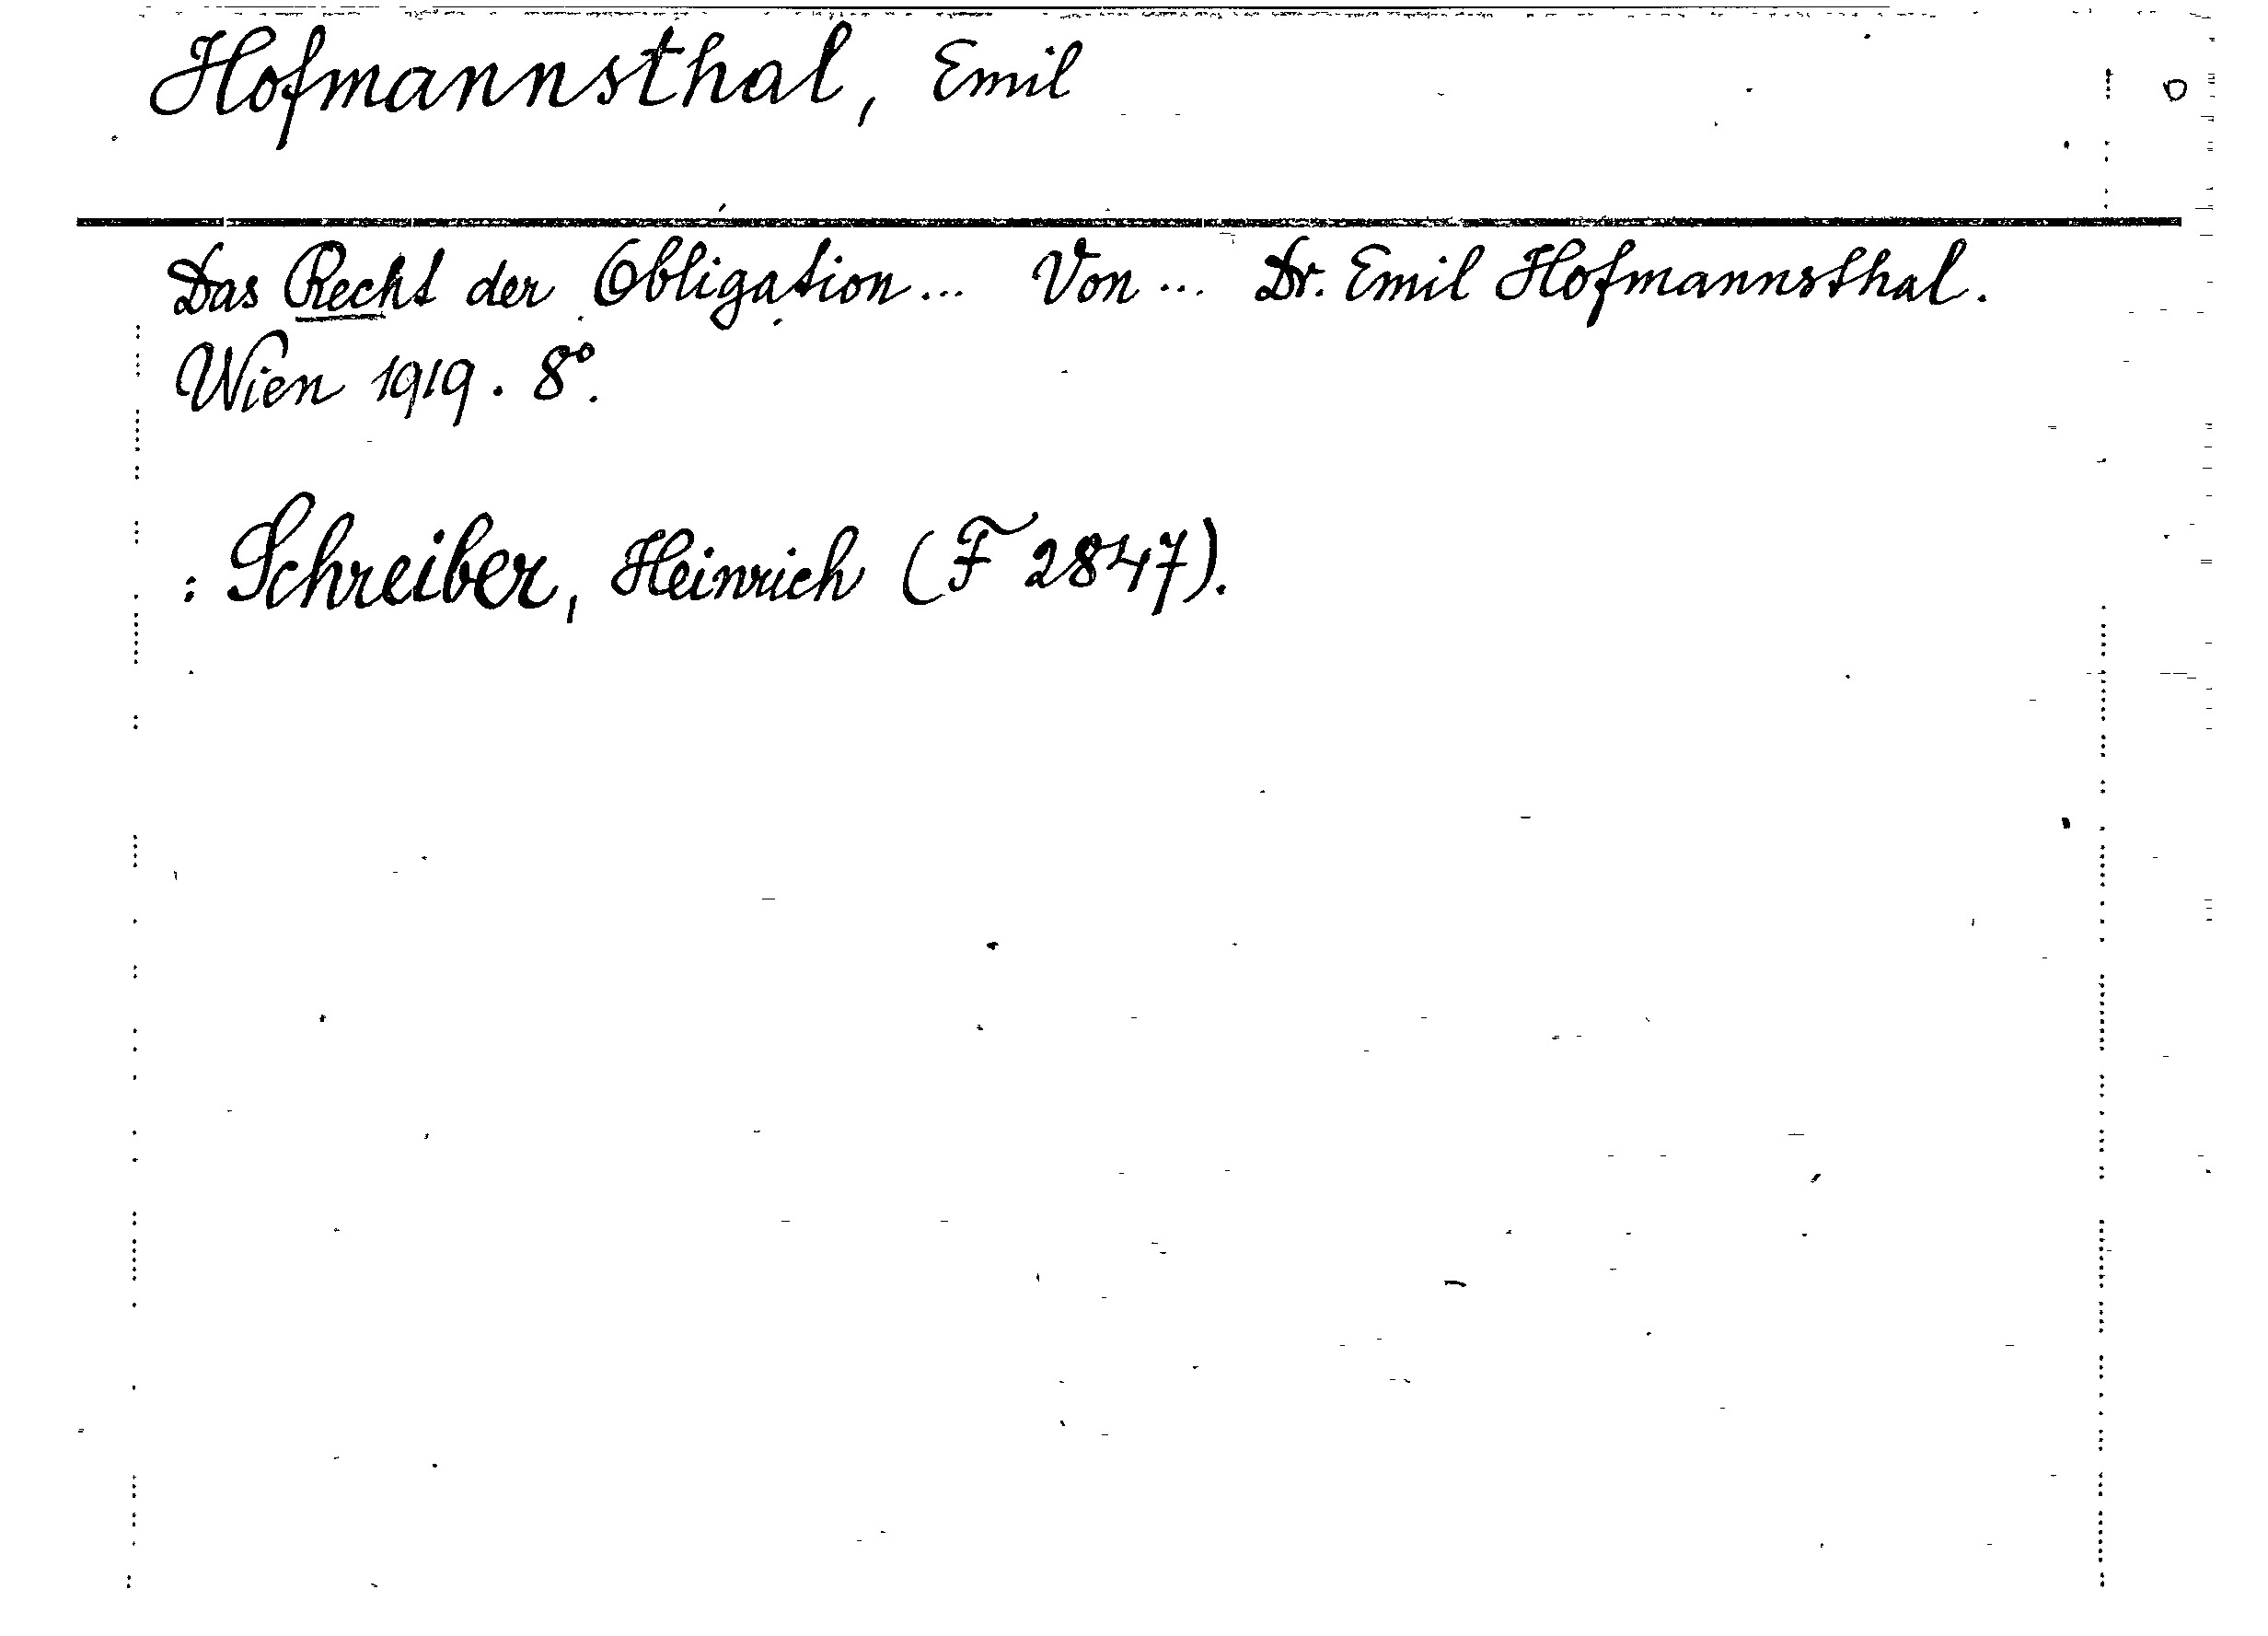 Hofmannsthal, Emil
Das Recht der Obligation... Von... Dr. Emil Hofmannsthal.
Wien 1919. 8°.
: Schreiber, Heinrich (F 2847).